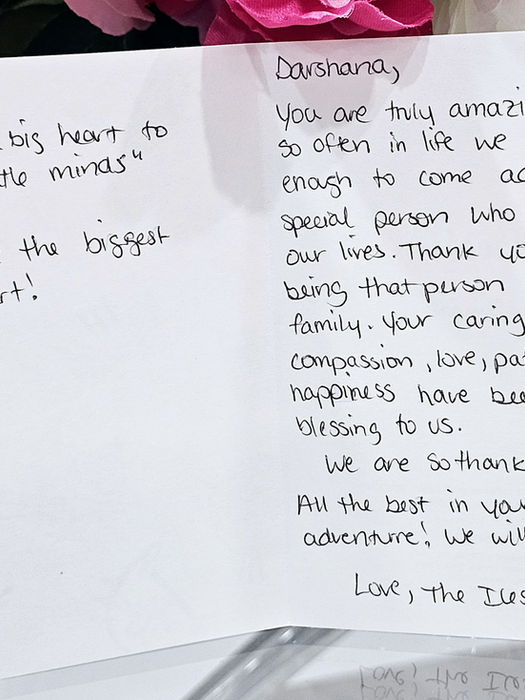 big heart to
minds"
the biggest
Darshana,
You are truly
so often in life we
enough to come
special person who
our lives. Thank
being that person
family. Your caring
compassion, love,
happiness have
blessing to us.
We are so
All the best in
adventure! We
Love, The